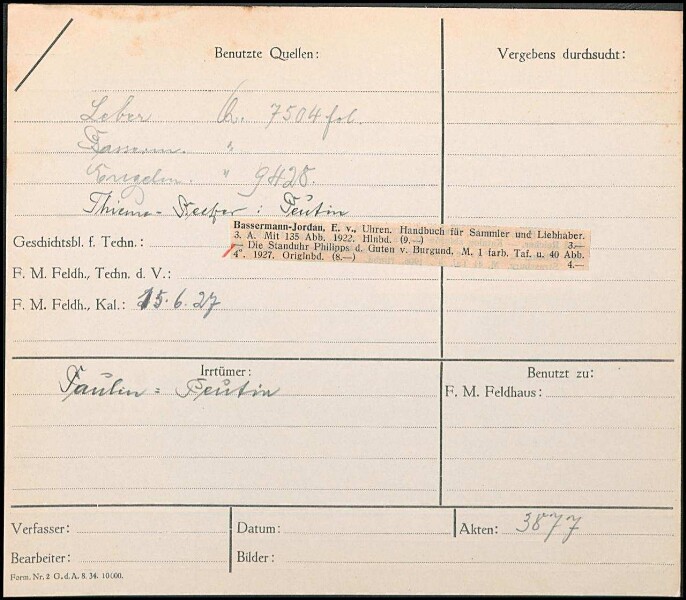 Benutzte Quellen:
Vergebens durchsucht:
7504 fol.
"
" 9428.
Thieme-
Geschichtsbl. f. Techn.:
Bassermann-Jordan, E. v., Uhren. Handbuch für Sammler und Liebhaber.
3. A. Mit 135 Abb. 1922. Hlnbd. (9.—) 3.—
— Die Standuhr Philipps d. Guten v. Burgund. M. 1 farb. Taf. u. 40 Abb.
4°. 1927. Origlnbd. (8.—) 4.—
F. M. Feldh., Techn. d. V.:
F. M. Feldh., Kal.: 15.6.27
Irrtümer:
Benutzt zu:
F. M. Feldhaus:
Verfasser:
Datum:
Akten: 3877
Bearbeiter:
Bilder:
Form. Nr. 2 G. d. A. 8. 34. 10000.